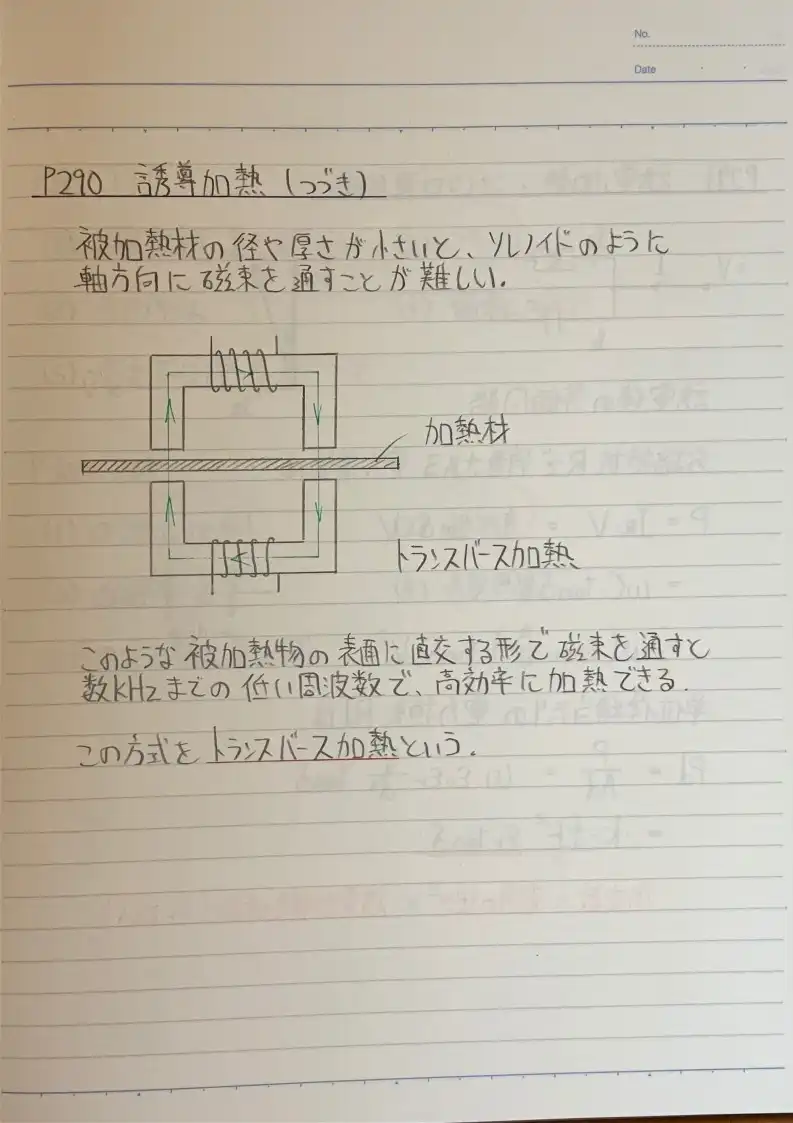 No.
Date
P290 誘導加熱 (つづき)
被加熱材の径や厚さが小さいと、ソレノイドのように
軸方向に磁束を通すことが難しい.
加熱材
トランスバース加熱
このような被加熱物の表面に直交する形で磁束を通すと
数kHzまでの低い周波数で、高効率に加熱できる.
この方式をトランスバース加熱という.